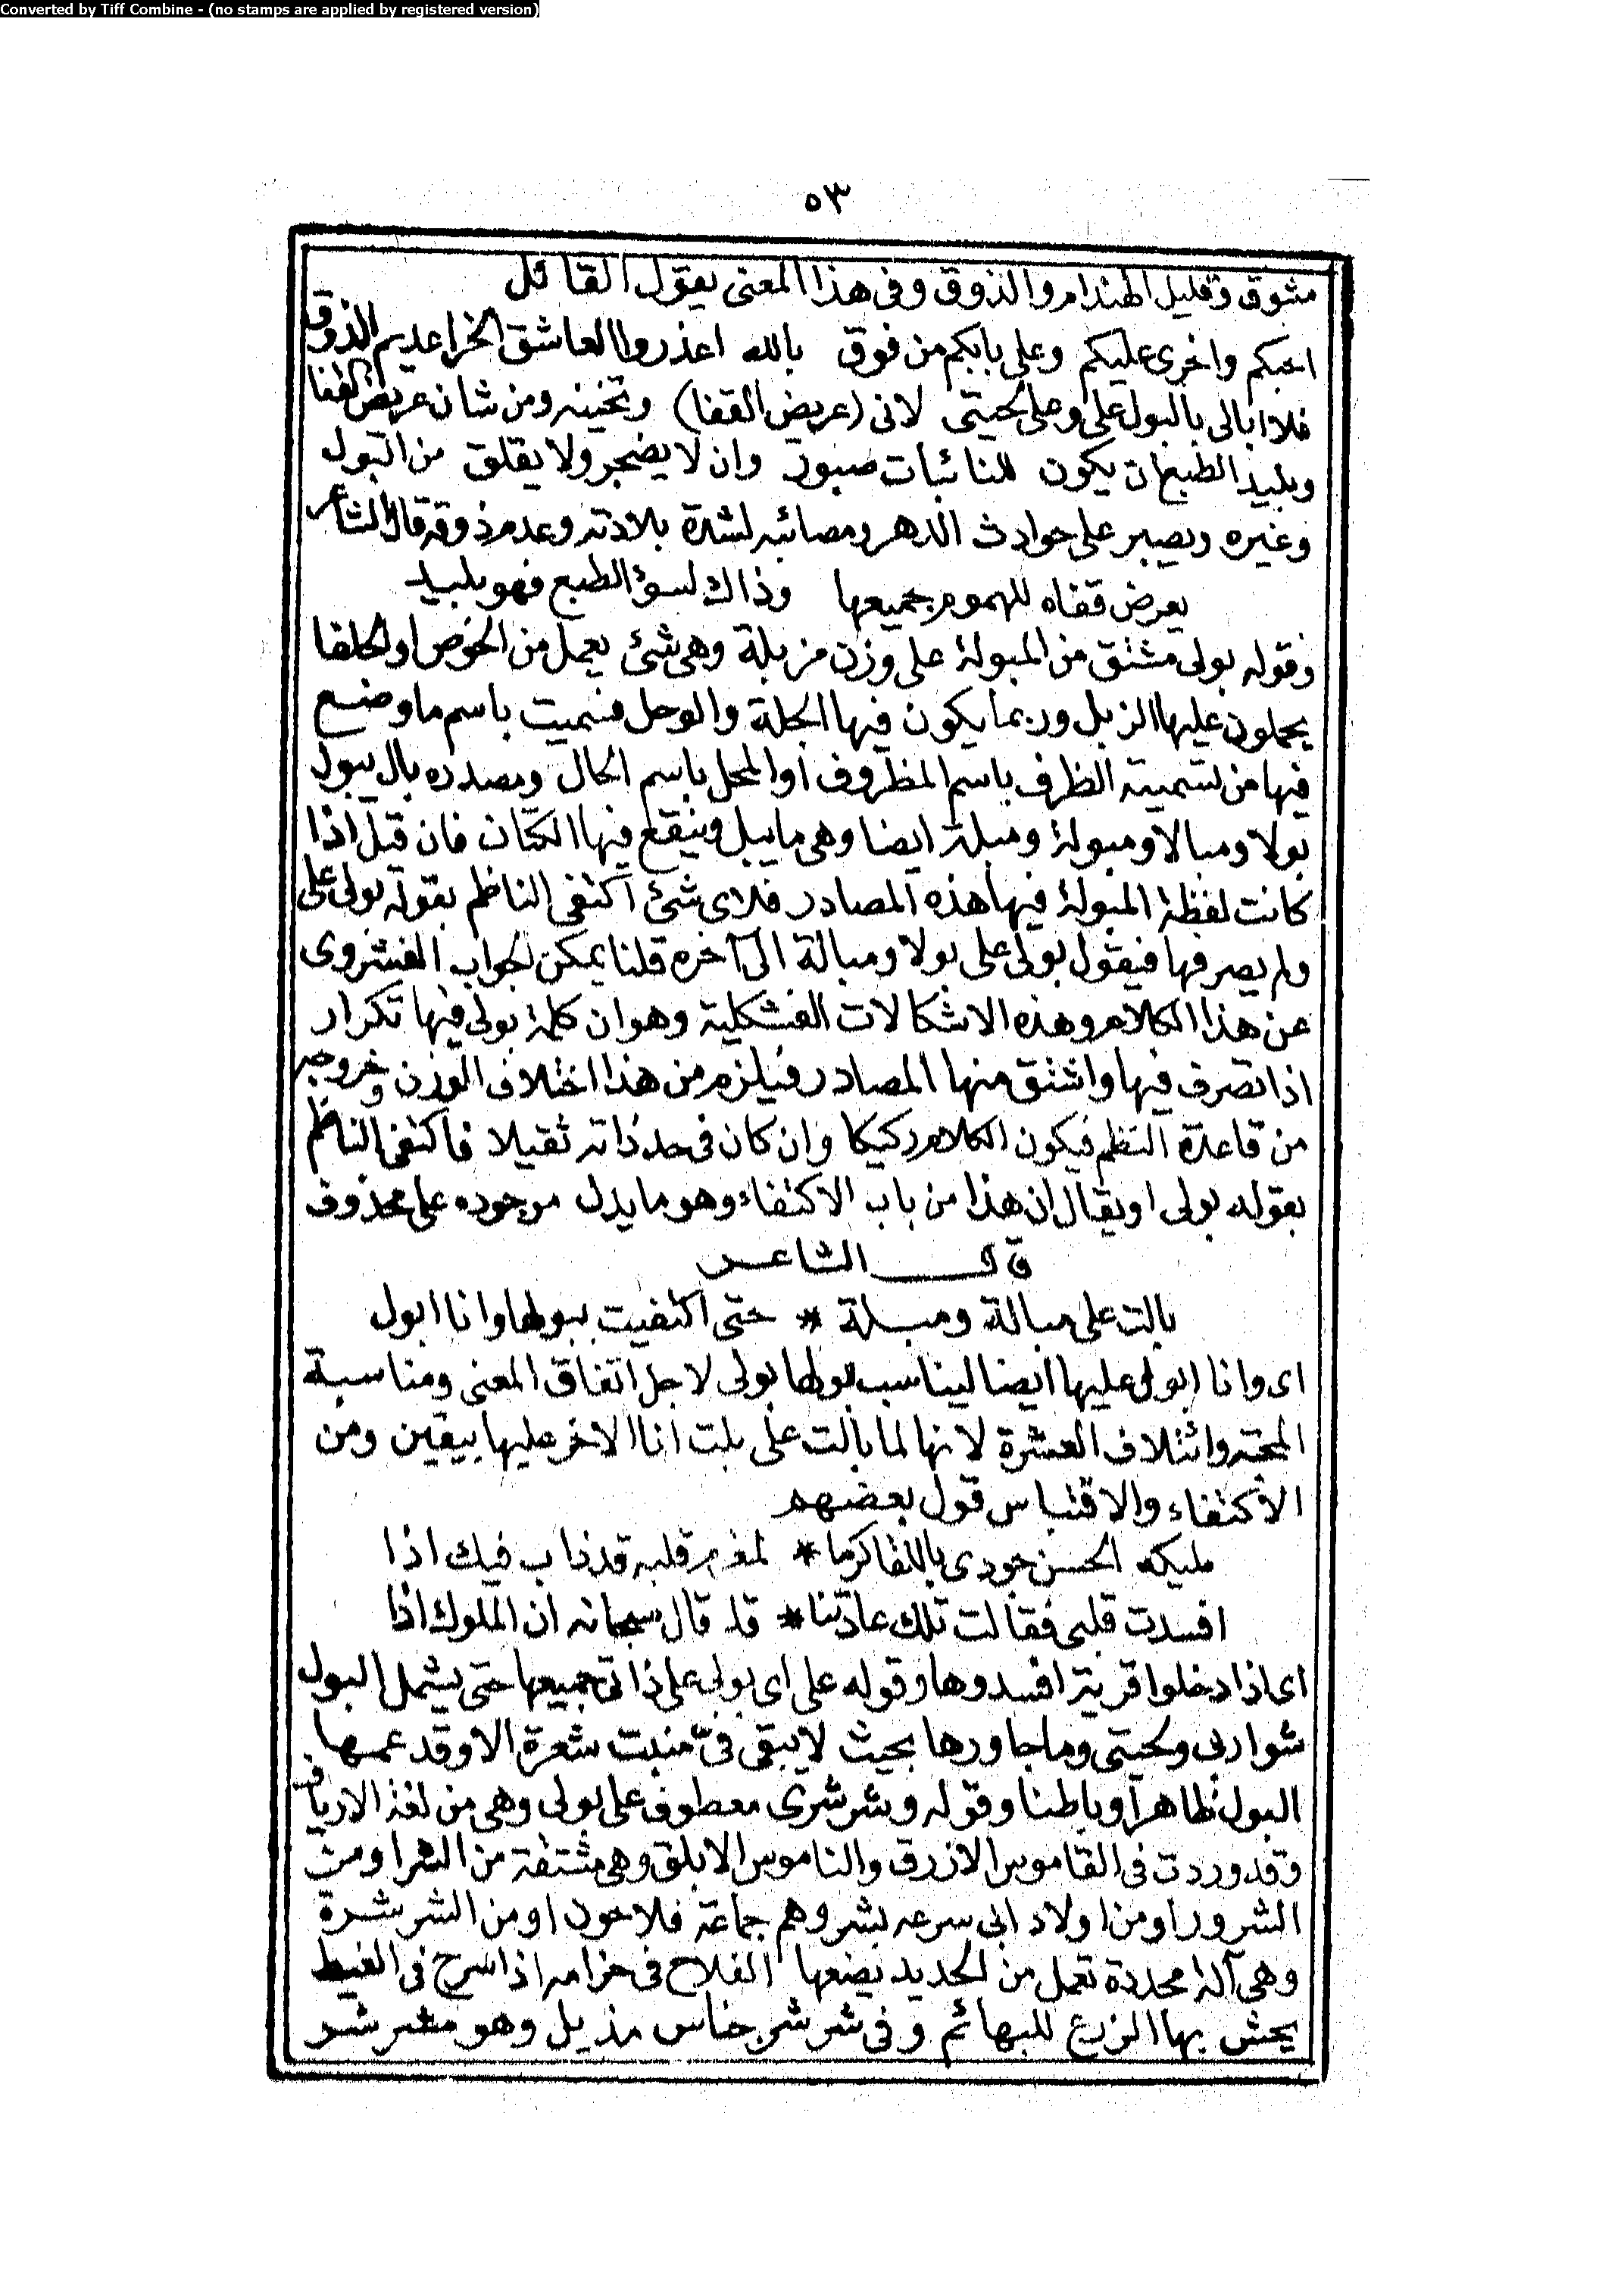 Converted by Tiff Combine - (no stamps are applied by registered version)
٥٣
مشوق وقليل الهندام والذوق وفى هذا المعنى يقول القائل
احبكم واخرى عليكم وعلى بابكم من فوق بالله اعذروا العاشق الخرا عديم الذوق
فلا ابالى بالبول على وعلى لحيتى لانى (عريض القفا) وتخينه ومن شان عريض القفا
وبليد الطبع ان يكون للنائبات صبور وان لا يضجر ولا يقلق من البول
وغيره ويصبر على حوادث الدهر ومصائبه لشدة بلادته وعدم ذوقه قال الشاعر
يعرض قفاه للهموم جميعها وذاك لسوء الطبع فهو بليد
وقوله بولى مشتق من المبولة على وزن مزبلة وهى شئ يعمل من الخوص او الحلفا
يحملون عليها الزبل وربما يكون فيها الجلة والوحل فسميت باسم ما وضع
فيها من تسمية الظرف باسم المظروف او المحل باسم الحال ومصدره بال يبول
بولا ومبالا ومبولة ومبلة ايضا وهى ما يبل وينقع فيها الكتان فان قيل اذا
كانت لفظة المبولة فيها هذه المصادر فلاى شئ اكتفى الناظم بقوله بولى على
ولم يصرفها فيقول بولى على بولا ومبالة الى آخره قلنا يمكن الجواب الفشروى
عن هذا الكلام وهذه الاشكالات الفشكلية وهو ان كلمة بولى فيها تكرار
اذا تصرف فيها واشتق منها المصادر فيلزم من هذا اختلاف الوزن وخروجه
من قاعدة النظم فيكون الكلام ركيكا وان كان فى حد ذاته ثقيلا فاكتفى الناظم
بقوله بولى او يقال ان هذا من باب الاكتفاء وهو ما يدل موجوده على محذوف
قال الشاعر
بالت على مبالة ومبلة * حتى اكتفيت ببولها وانا ابول
اى وانا ابول عليها ايضا ليناسب بولها بولى لاجل اتفاق المعنى ومناسبة
المحبة وائتلاف العشرة لانها لما بالت على بلت انا الاخر عليها بيقين ومن
الاكتفاء والاقتباس قول بعضهم
مليكة الحسن جودى باللقا كرما * لمغرم قلبه قد ذاب فيك اذا
افسدت قلبى فقالت تلك عادتنا * قد قال سبحانه ان الملوك اذا
اى اذا دخلوا قرية افسدوها وقوله على اى بولى على ذاتى جميعها حتى يشمل البول
شواربى ولحيتى وما جاورها بحيث لا يبقى فى منبت شعرة الا وقد عمها
البول ظاهرا وباطنا وقوله وشرشرى معطوف على بولى وهى من لغة الارياف
وقد وردت فى القاموس الازرق والناموس الابلق وهى مشتقة من الشر او من
الشرور او من اولاد ابى سرعه بشر وهم جماعة فلاحون او من الشرشرة
وهى آلة محددة تعمل من الحديد يضعها الفلاح فى حزامه اذا سرح فى الغيط
يحش بها الزرع للبهائم وفى شرشر جناس مذيل وهو شر شر